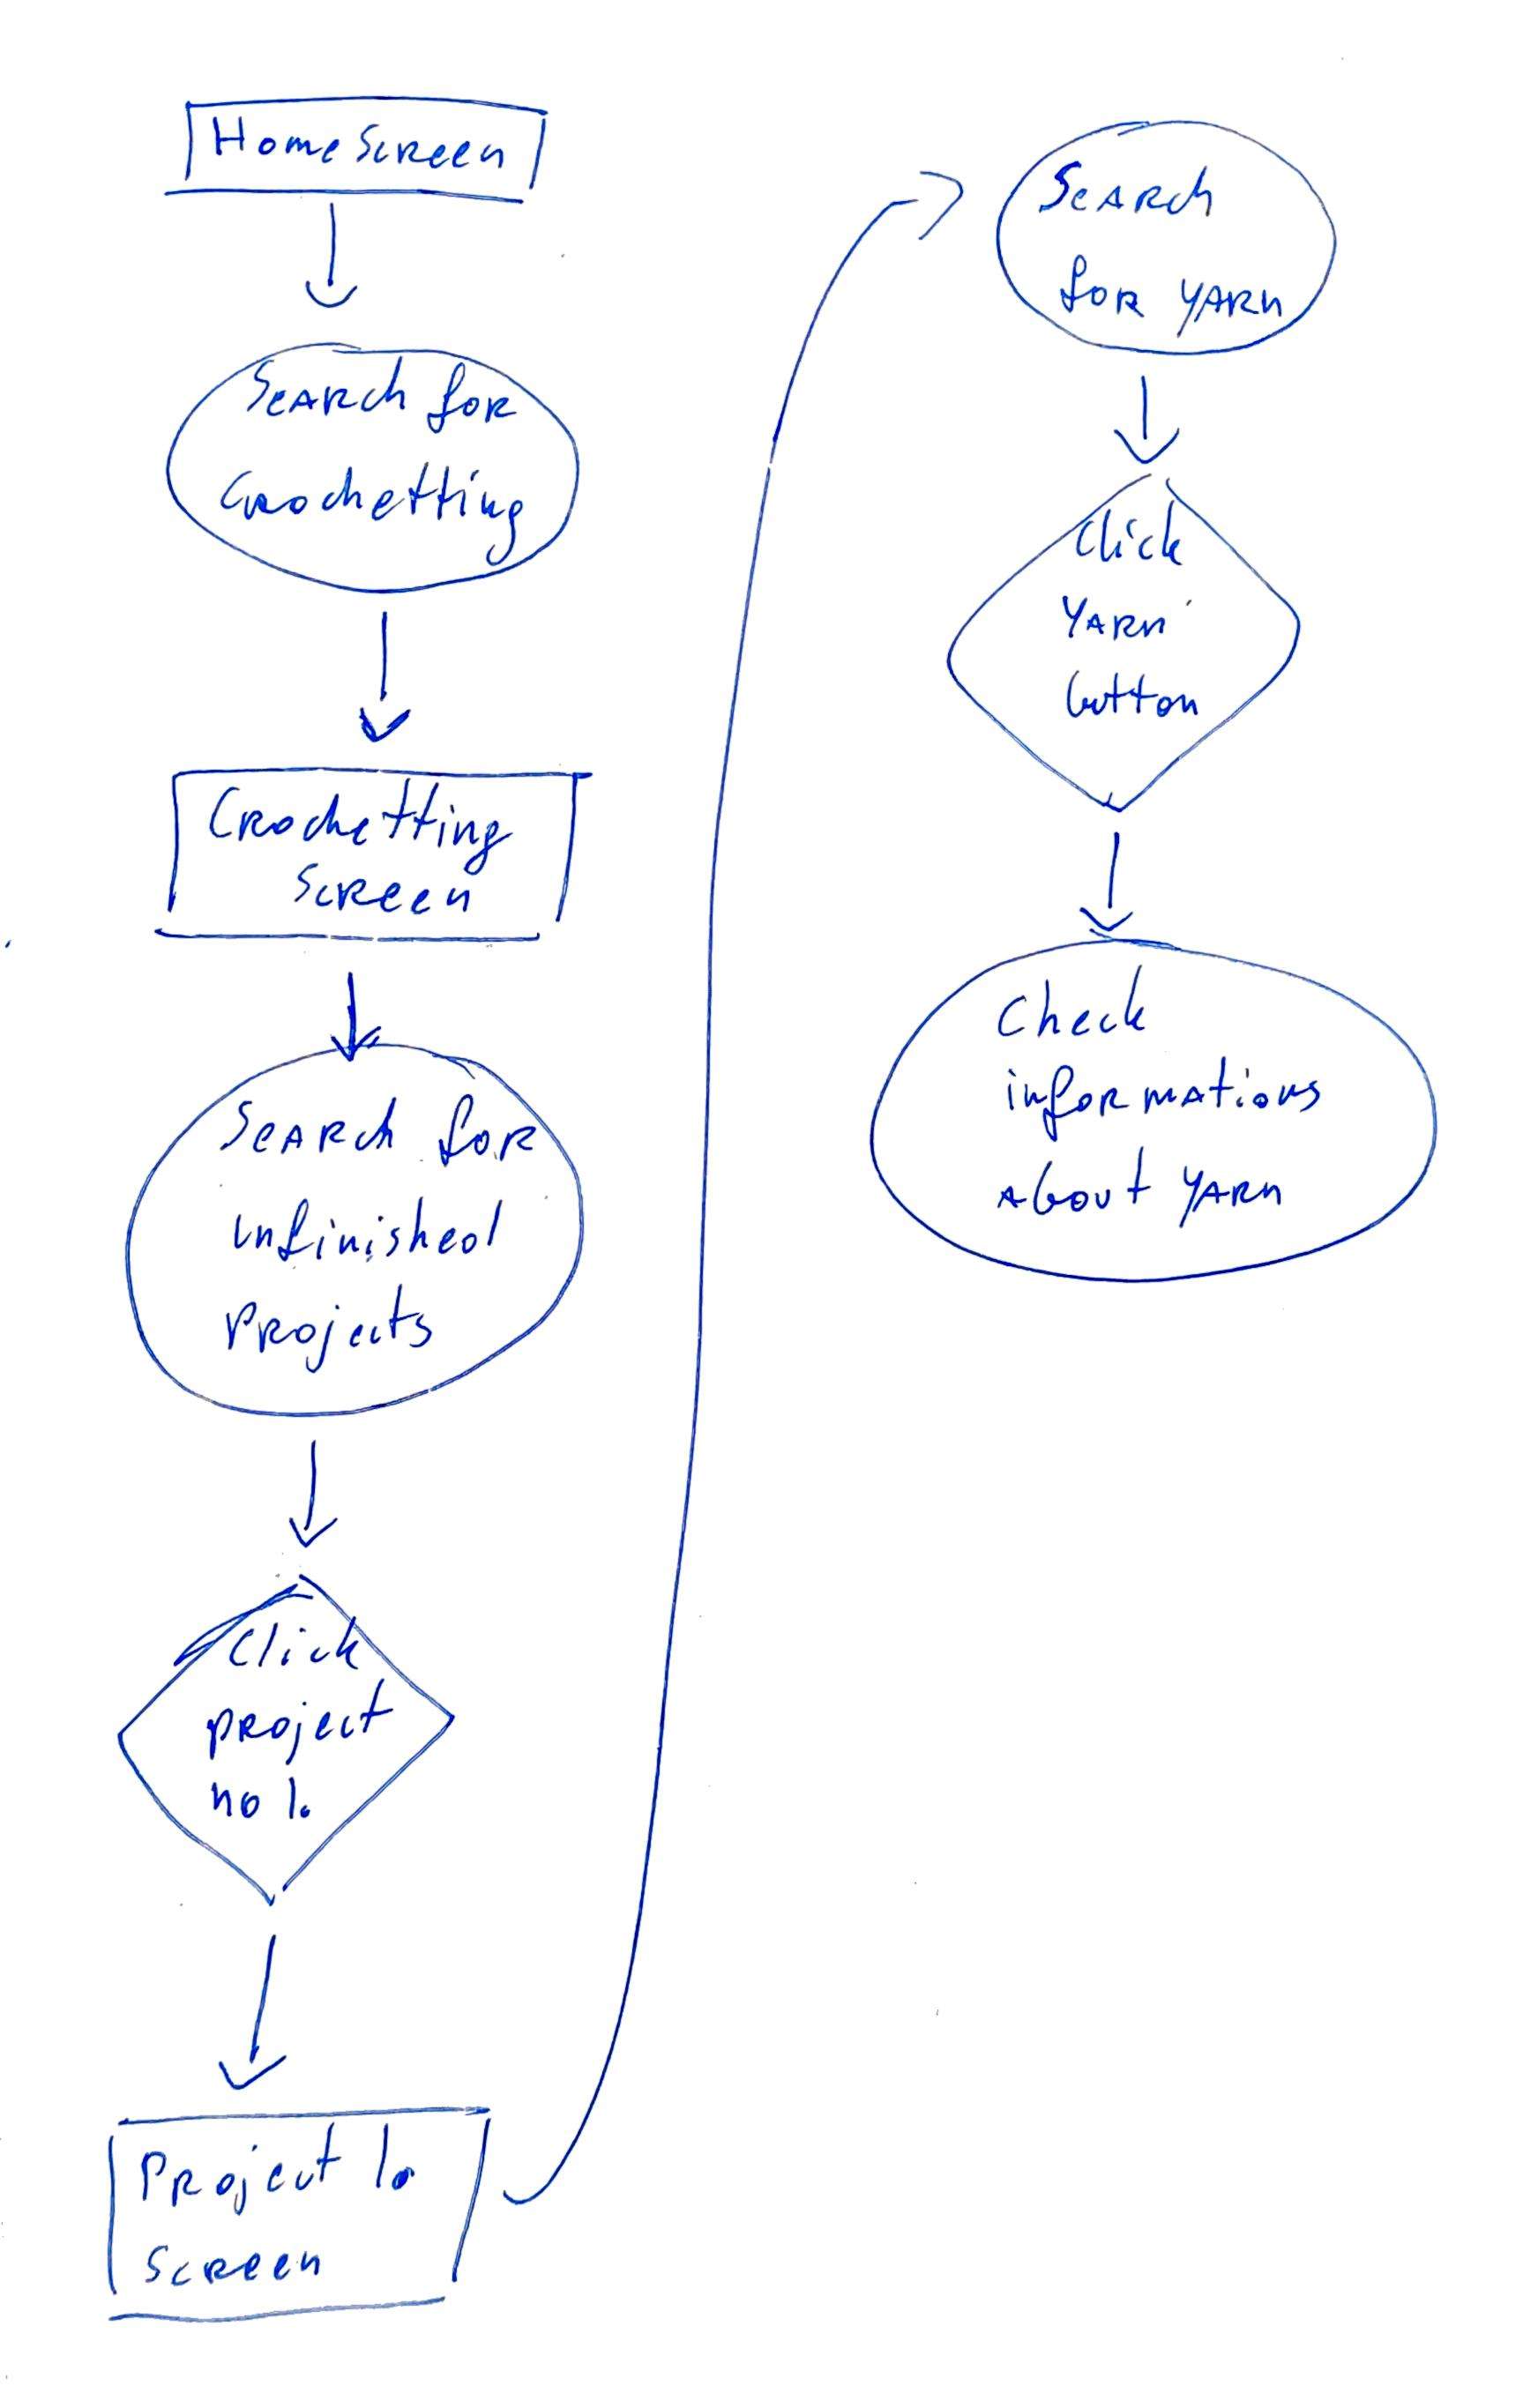 Home Screen
Search for
Crochetting
Crochetting
Screen
Search for
unfinished
projects
Click
project
no 1.
Project 1.
Screen
Search
for yarn
Click
yarn
button
Check
informations
about yarn